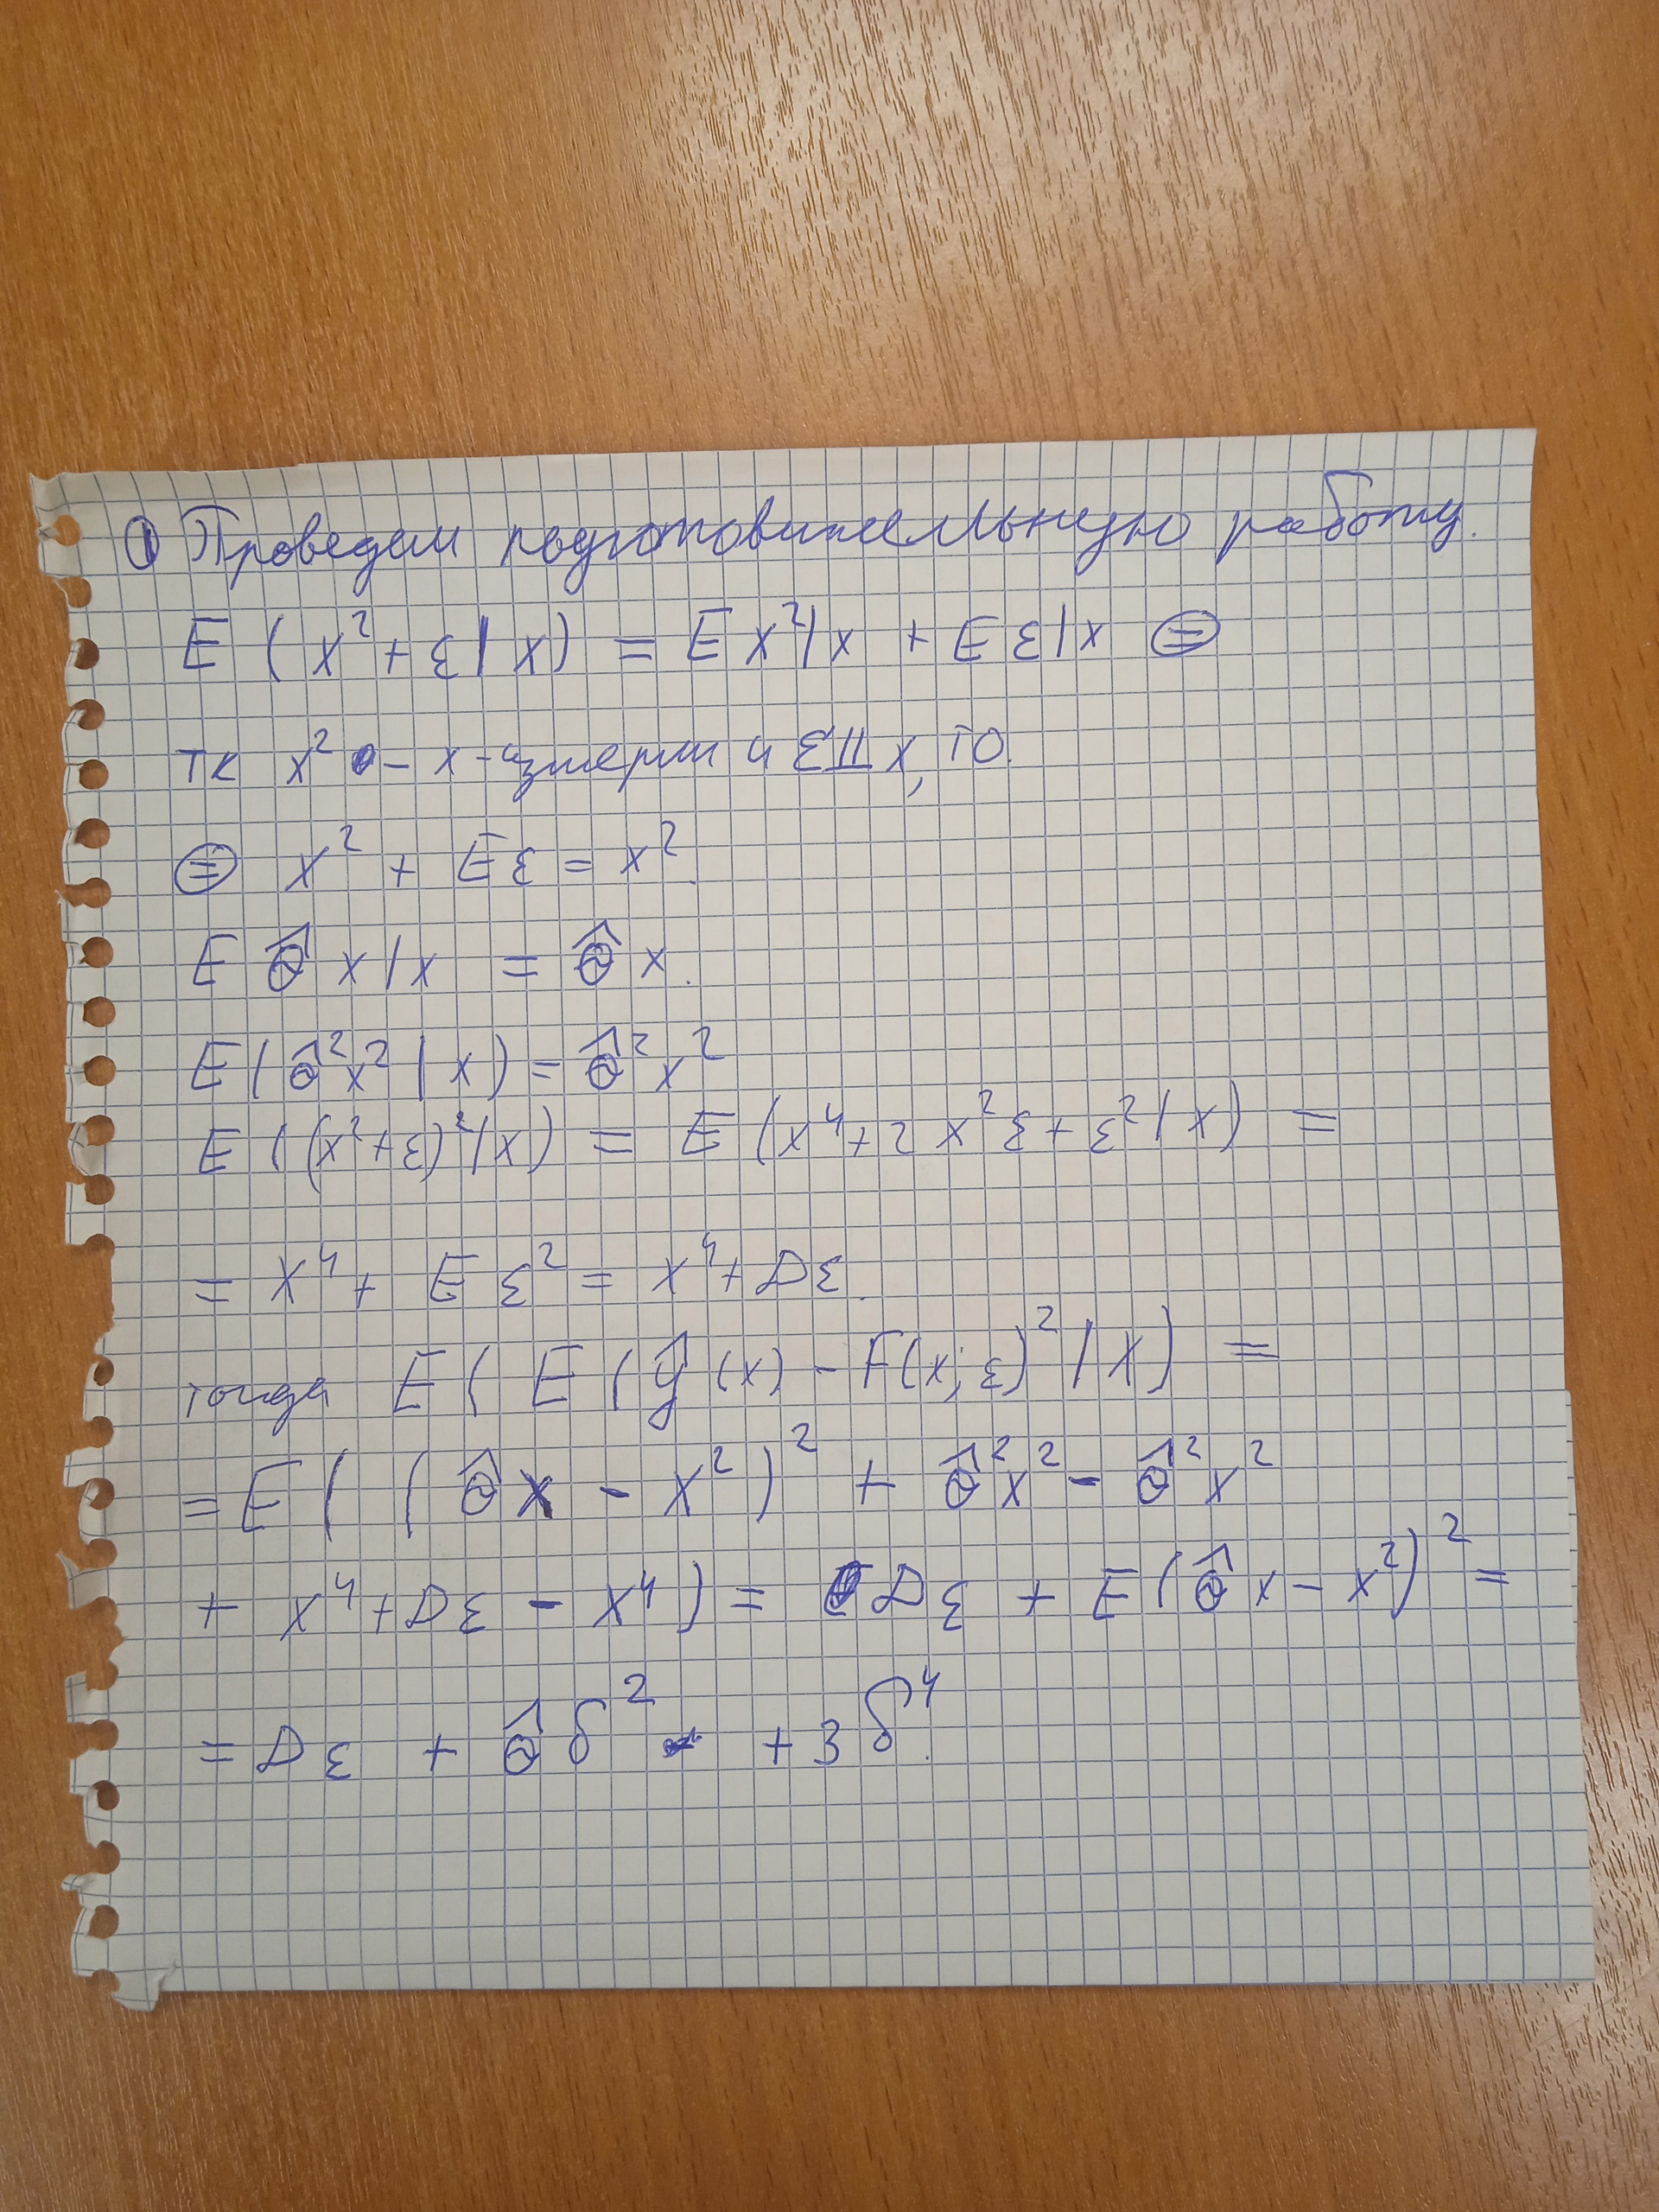 ① Проведем подготовительную работу.
E (x² + ε | x) = E x² | x + E ε | x ⊜
тк x² - x - измерим и ε ⫫ x, то
⊜ x² + E ε = x².
E θ̂ x | x = θ̂ x.
E (θ̂² x² | x) = θ̂² x²
E ((x² + ε)² | x) = E (x⁴ + 2 x² ε + ε² | x) =
= x⁴ + E ε² = x⁴ + D ε.
тогда E ( E (ŷ (x) - f(x, ε)² | x) =
= E ( ( θ̂ x - x² )² + θ̂² x² - θ̂² x²
+ x⁴ + D ε - x⁴ ) = D ε + E (θ̂ x - x²)² =
= D ε + θ̂ δ² + 3 δ⁴.